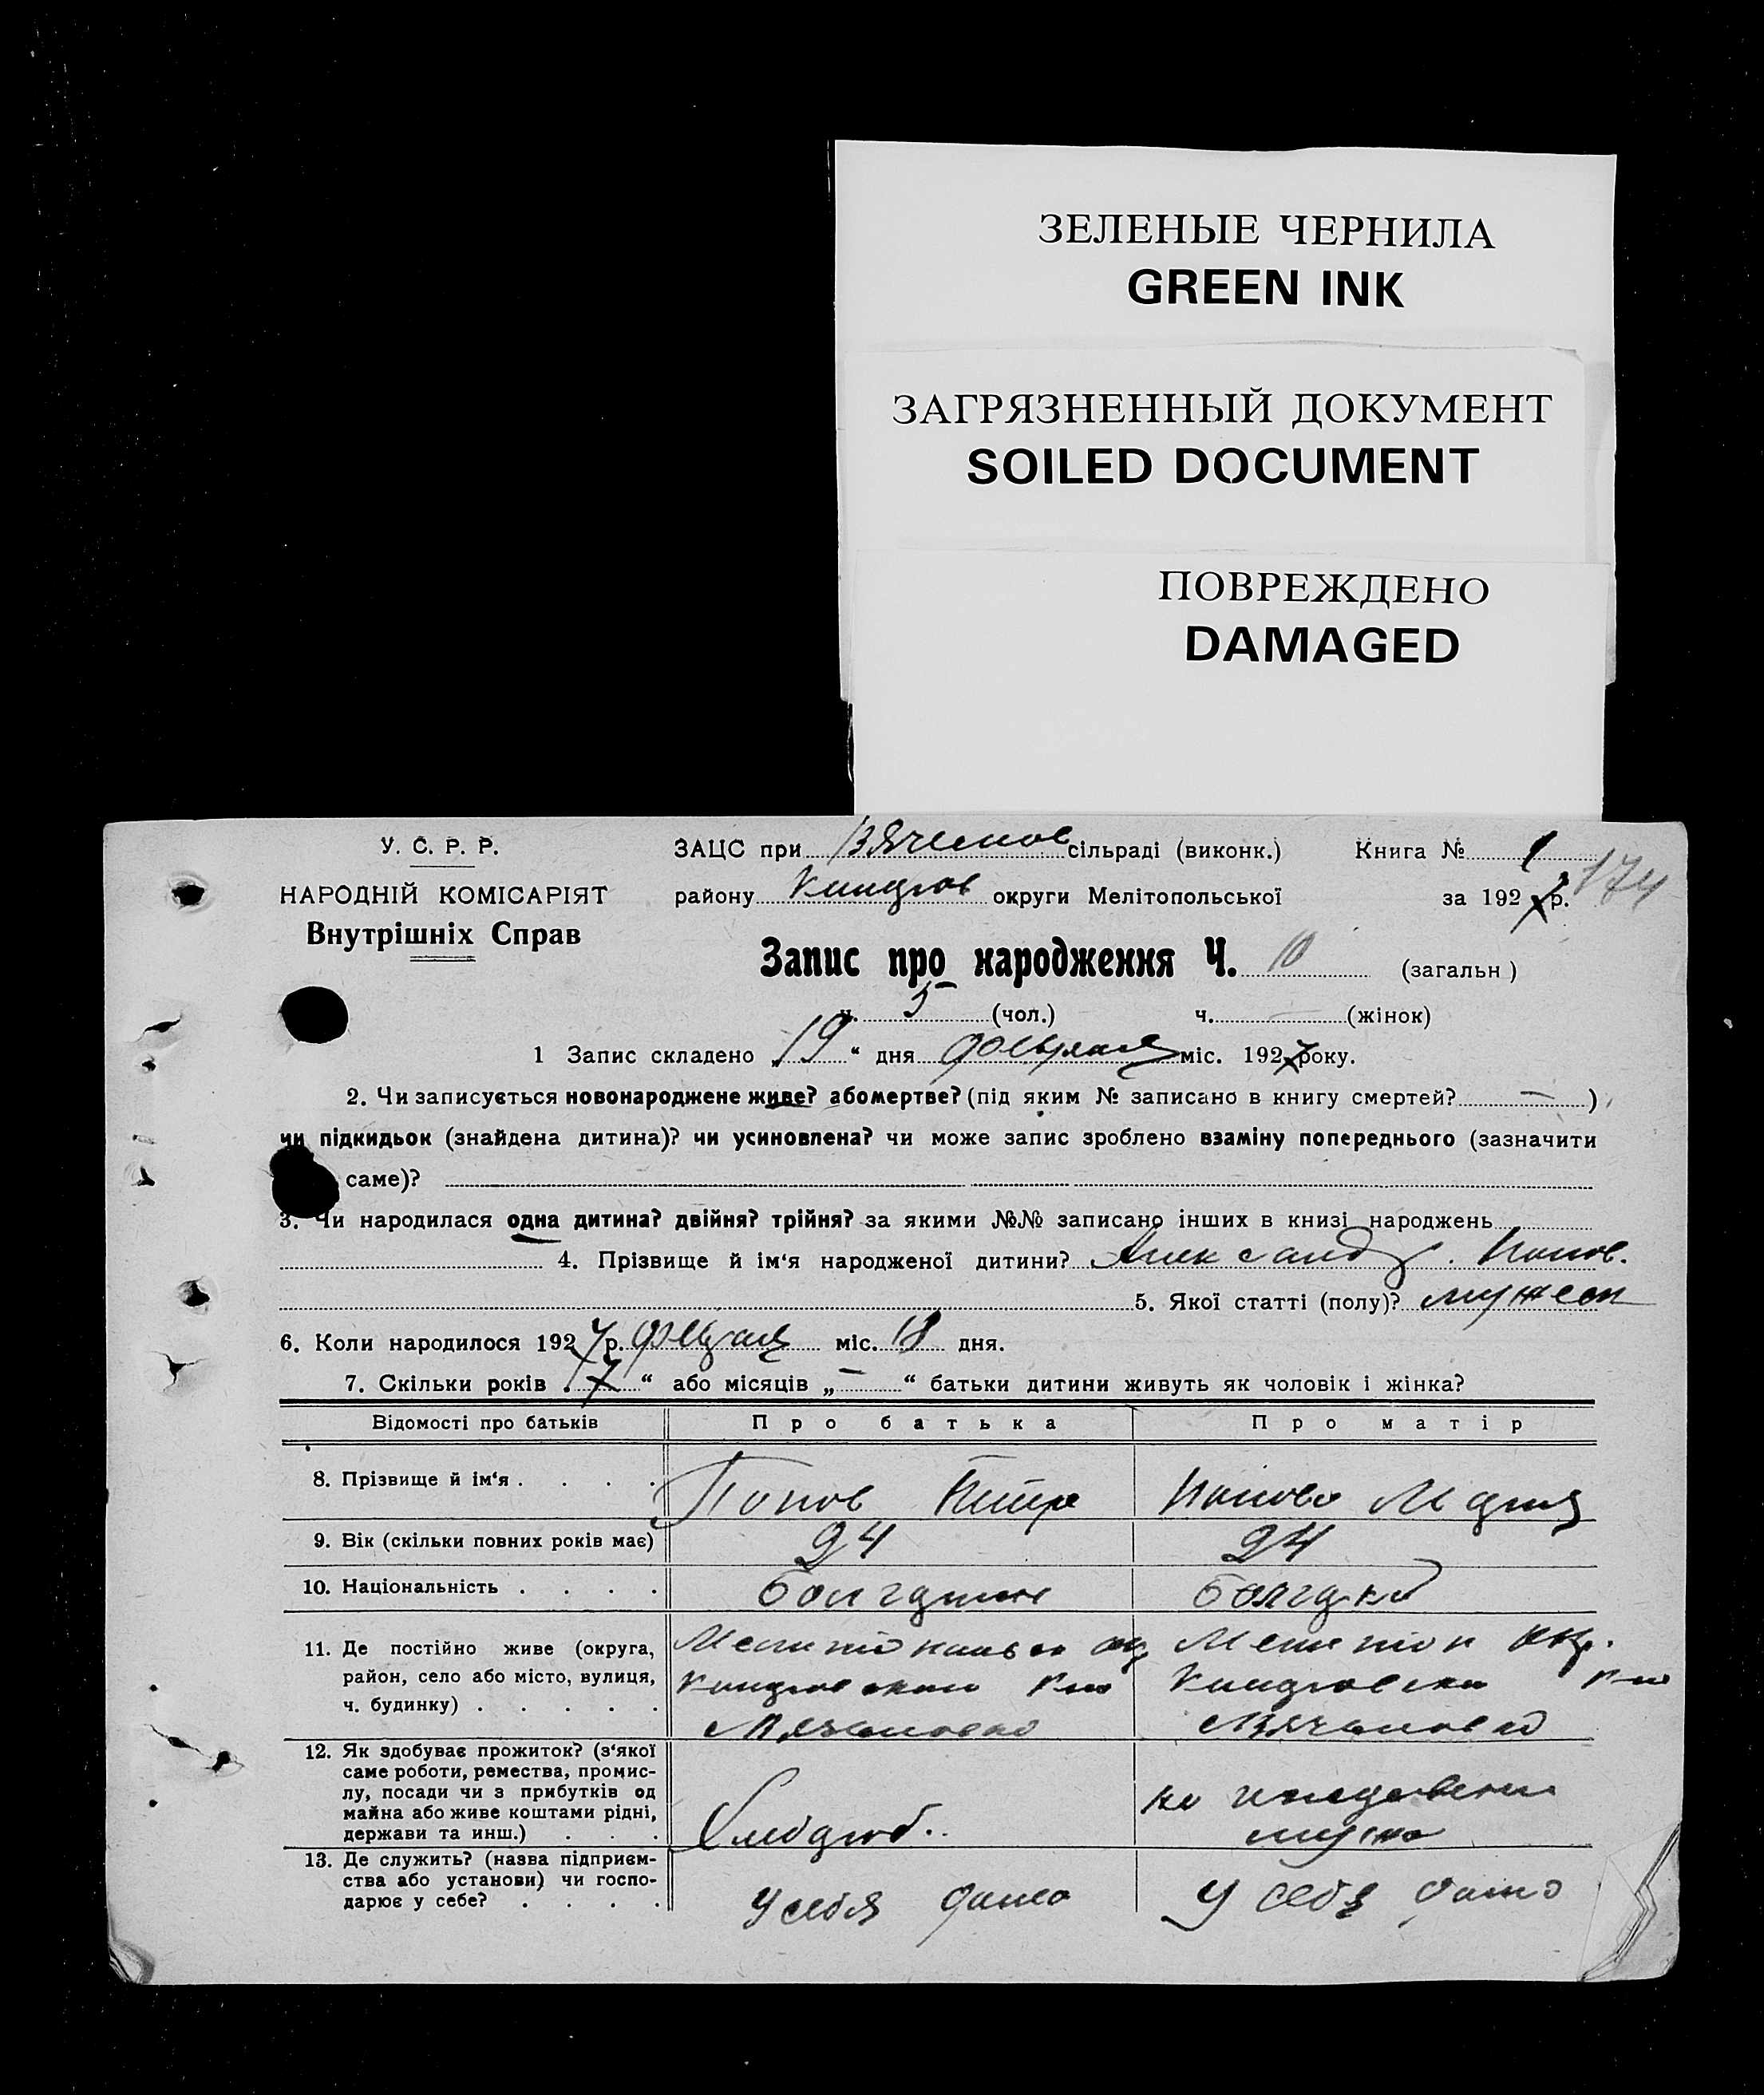 ЗЕЛЕНЫЕ ЧЕРНИЛА
GREEN INK
ЗАГРЯЗНЕННЫЙ ДОКУМЕНТ
SOILED DOCUMENT
ПОВРЕЖДЕНО
DAMAGED
У. С. Р. Р.
НАРОДНІЙ КОМІСАРІЯТ
Внутрішніх Справ
ЗАЦС при Вячеслов сільраді (виконк.) Книга № 1
174
району округи Мелітопольської за 1927 р.
Запис про народження Ч. 10 (загальн)
ч. 5 (чол.) ч. — (жінок)
1 Запис складено „19“ дня февраля міс. 1927 року.
2. Чи записується новонароджене живе? або мертве? (під яким № записано в книгу смертей? — )
чи підкидьок (знайдена дитина)? чи усиновлена? чи може запис зроблено взаміну попереднього (зазначити
саме)?
3. Чи народилася одна дитина? двійня? трійня? за якими №№ записано інших в книзі народжень
4. Прізвище й ім‘я народженої дитини? Александр. Попов.
5. Якої статті (полу)? мужеск
6. Коли народилося 1927 р. февраля міс. 18 дня.
7. Скільки років „7“ або місяців „—“ батьки дитини живуть як чоловік і жінка?
Відомості про батьків Про батька Про матір
8. Прізвище й ім‘я . . . . Попов Петро Попова Мария
9. Вік (скільки повних років має) 24 24
10. Національність . . . . болгарин болгарка
11. Де постійно живе (округа,
район, село або місто, вулиця,
ч. будинку) . . . . .
Мелитоп окр.
12. Як здобуває прожиток? (з‘якої
саме роботи, ремества, промис-
лу, посади чи з прибутків од
майна або живе коштами рідні,
держави та инш.) . . .
Хлебороб. на иждевении
мужа
13. Де служить? (назва підприєм-
ства або установи) чи госпо-
дарює у себе? . . . .
у себя дома у себя дома